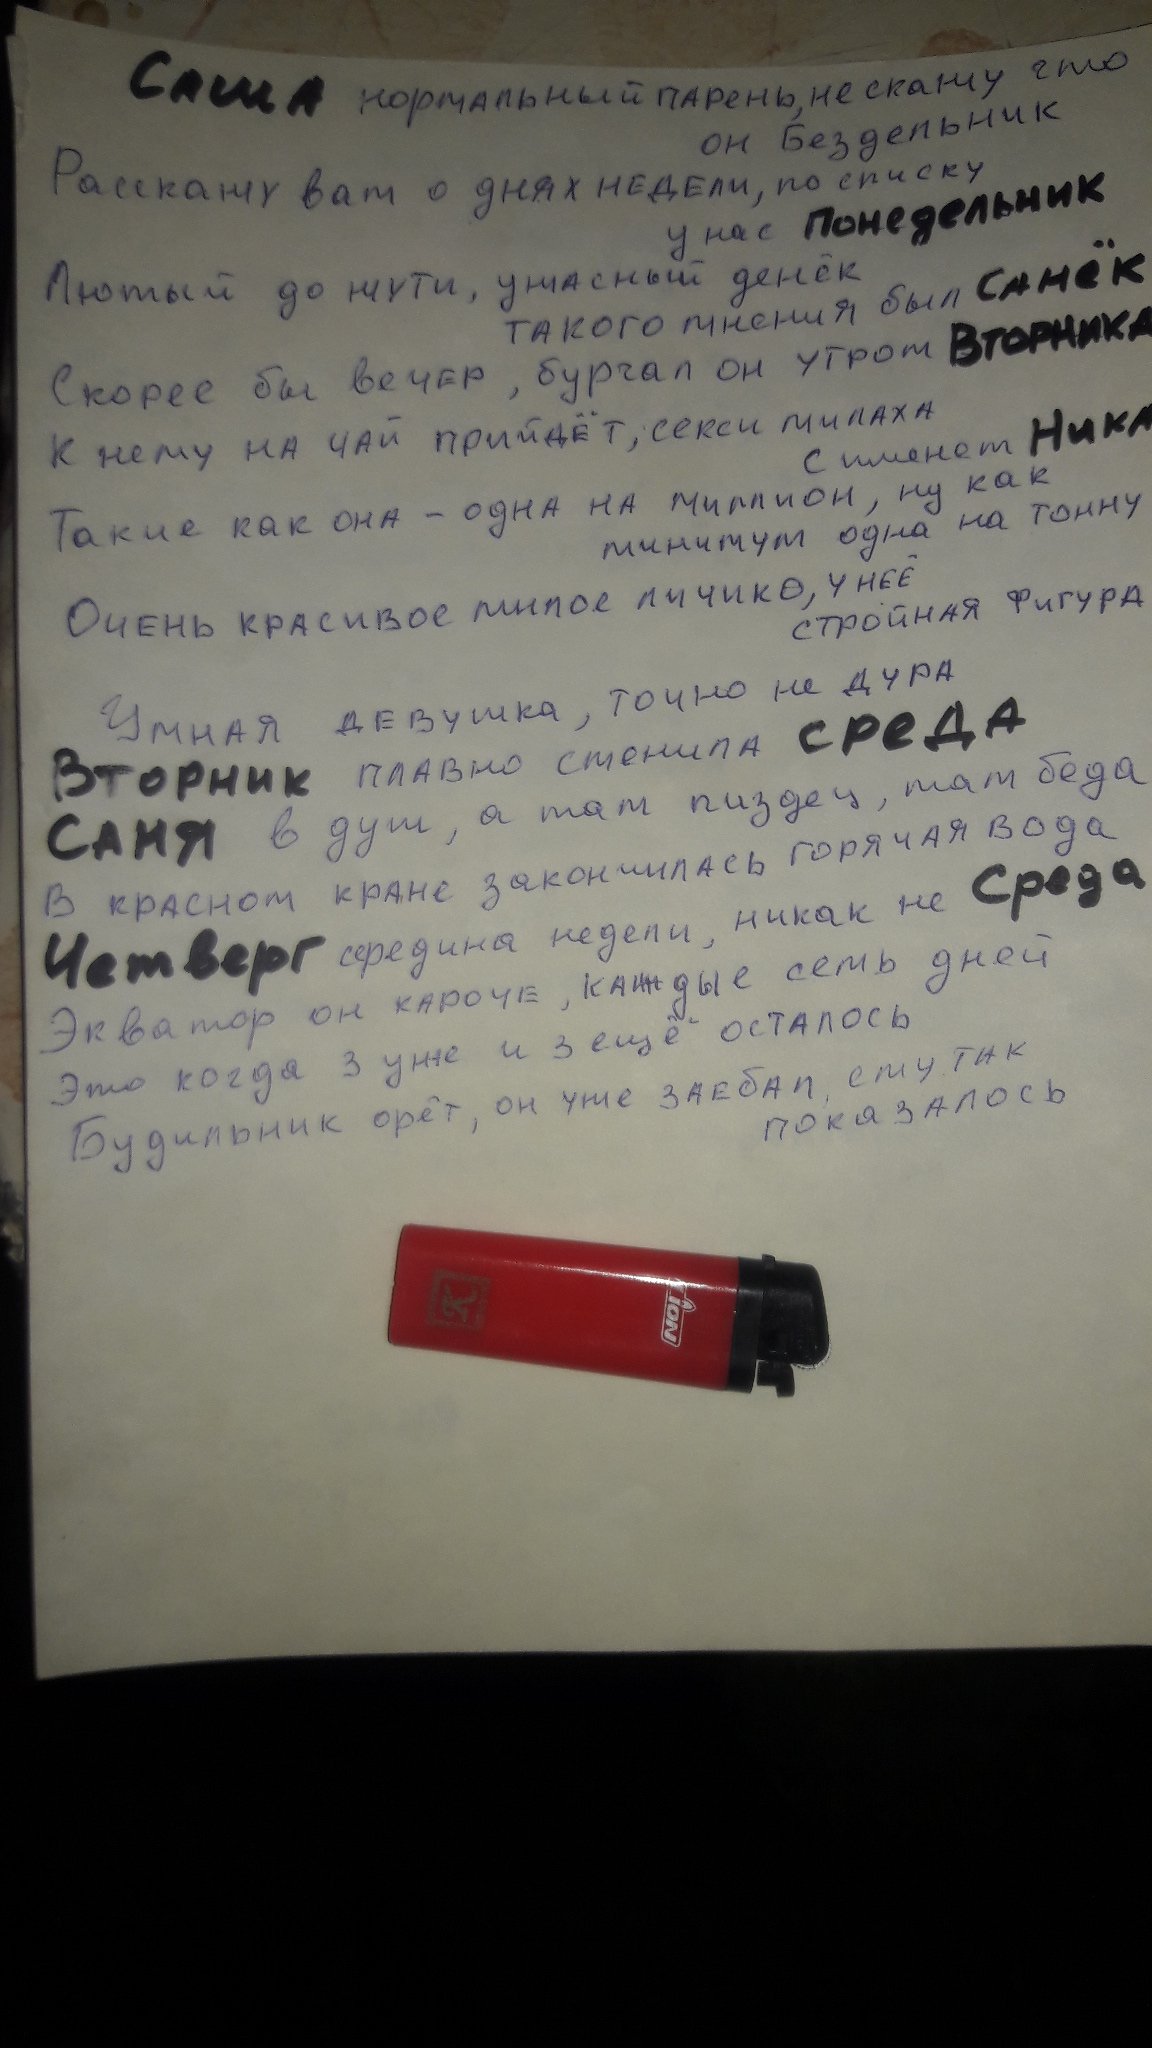 Саша нормальный парень, не скажу что
он Бездельник
Расскажу вам о днях недели, по списку
у нас Понедельник
Лютый до жути, ужасный денёк
такого мнения был Санёк
Скорее бы вечер, бурчал он утром Вторника
К нему на чай прийдёт, секси милаха
с именем Ника
Такие как она - одна на миллион, ну как
минимум одна на тонну
Очень красивое милое личико, у неё
стройная фигура
Умная девушка, точно не дура
Вторник плавно сменила среда
Саня в душ, а там пиздец, там беда
В красном кране закончилась горячая вода
Четверг середина недели, никак не Среда
Экватор он кароче, каждые семь дней
Это когда 3 уже и 3 ещё осталось
Будильник орёт, он уже заебал, ему так
показалось
K
ION